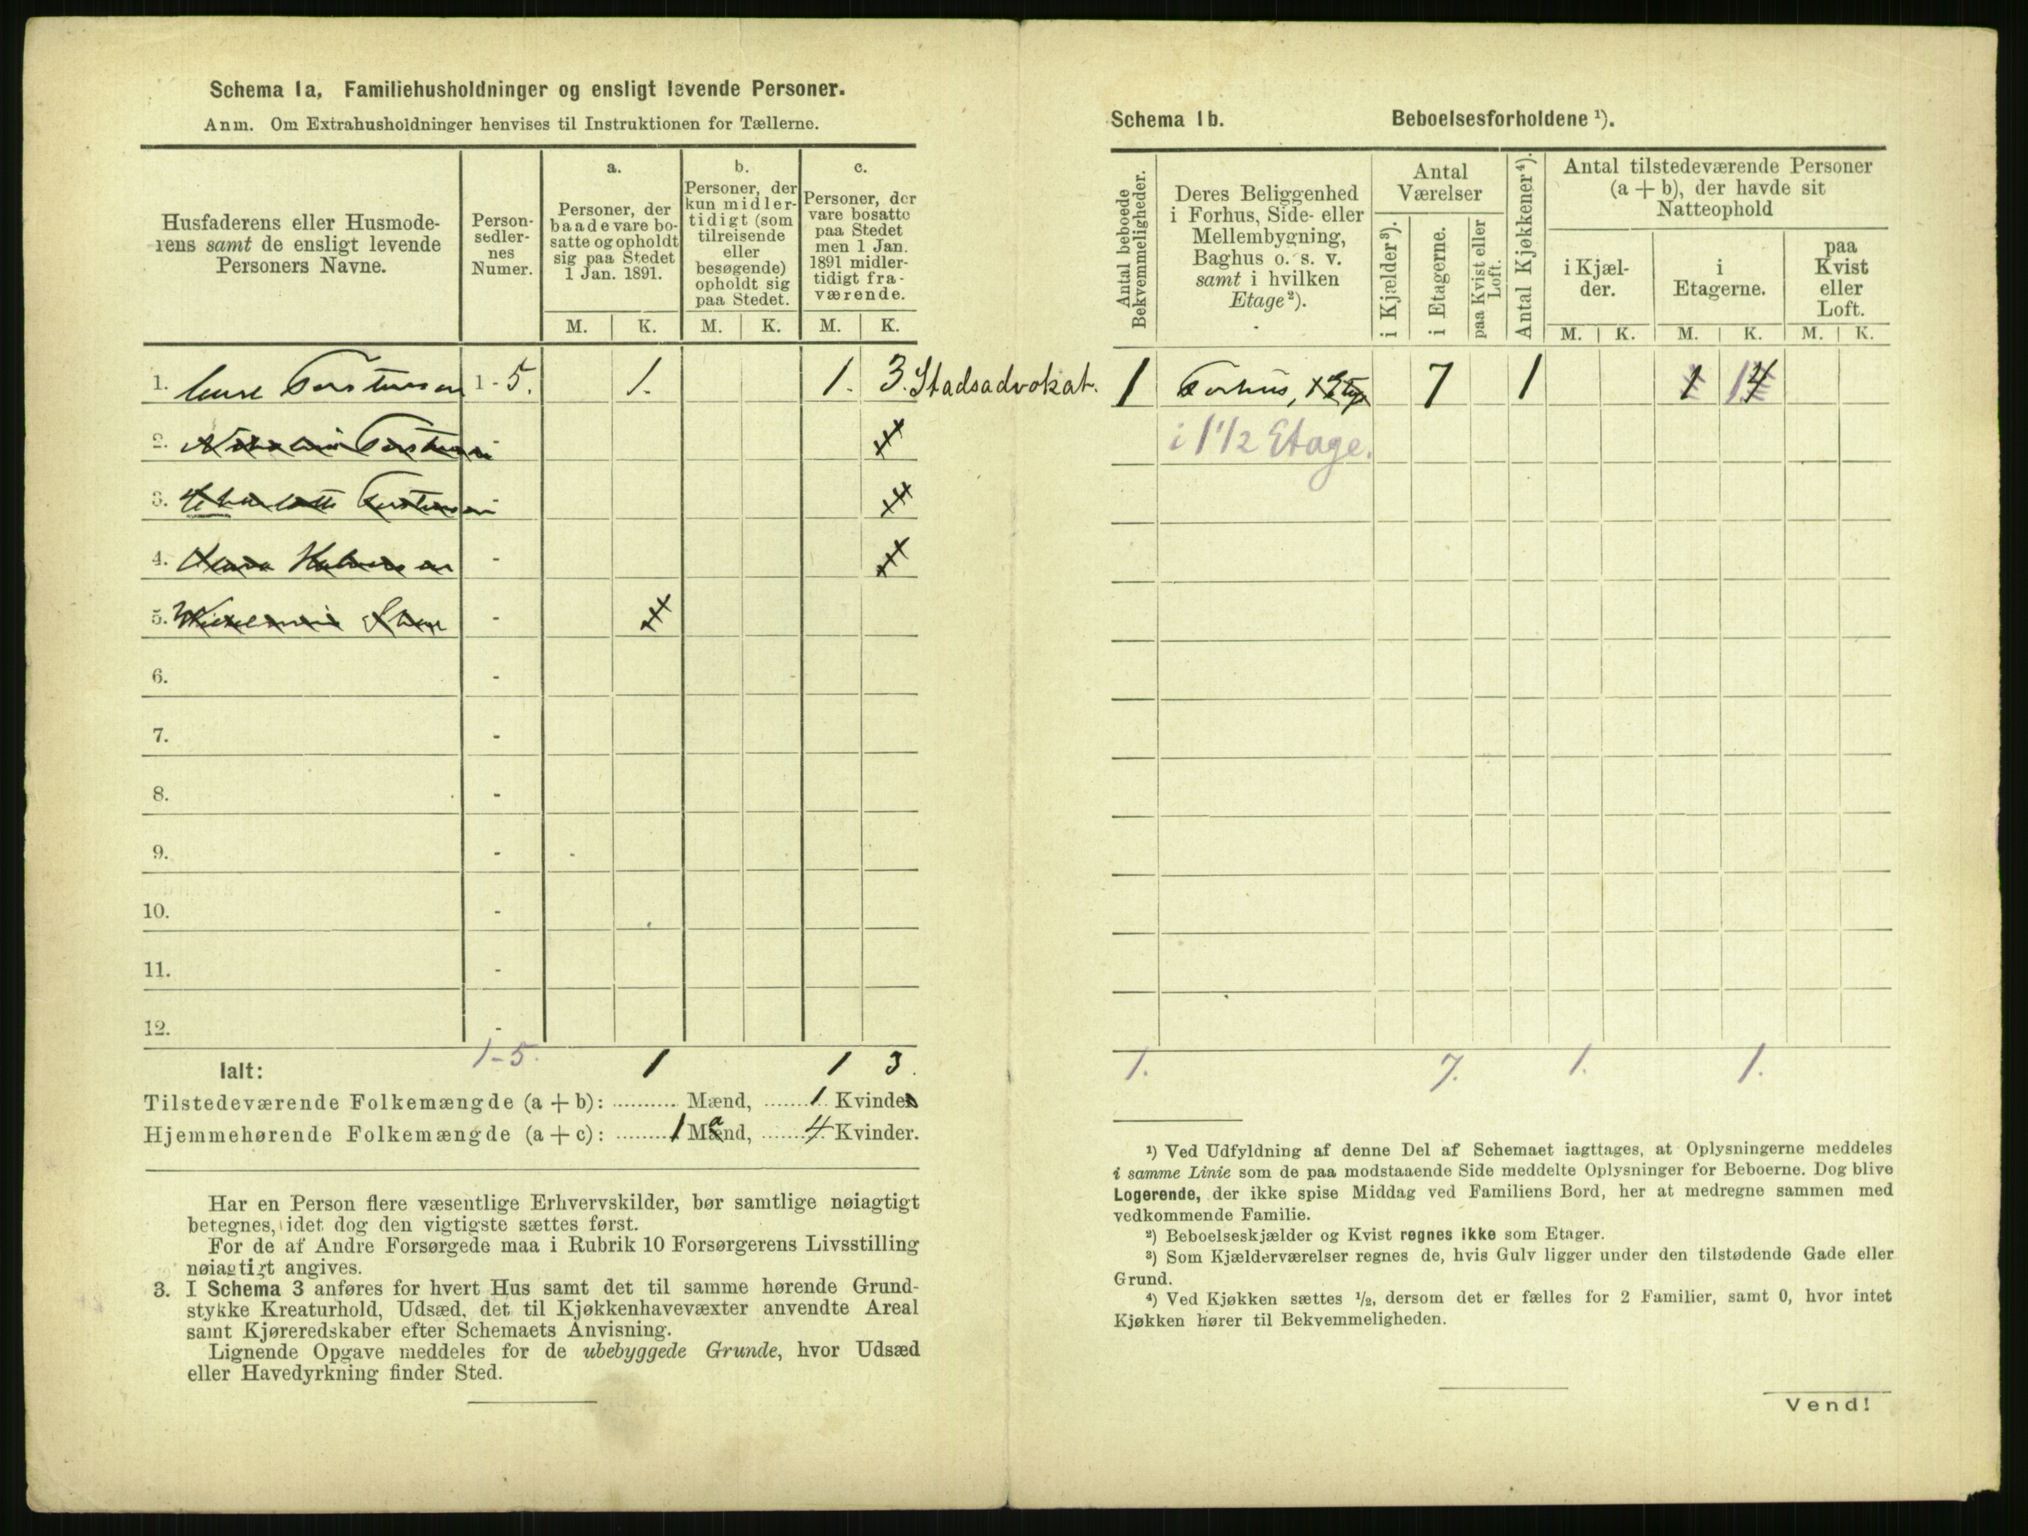 Schema 1a, Familiehusholdninger og ensligt levende Personer.
Anm. Om Extrahusholdninger henvises til Instruktionen for Tællerne.
Husfaderens eller Husmode-
rens samt de ensligt levende
Personers Navne.
Person-
sedler-
nes
Numer.
a.
Personer, der
baade vare bo-
satte og opholdt
sig paa Stedet
1 Jan. 1891.
b.
Personer, der
kun midler-
tidigt (som
tilreisende
eller
besøgende)
opholdt sig
paa Stedet.
c.
Personer, der
vare bosatte
paa Stedet
men 1 Jan.
1891 midler-
tidigt fra-
værende.
M. K. M. K. M. K.
1. Torstensen 1 - 5. 1. 1. 3. Stadsadvokat.
2. -
3. Charlotte Torstensen -
4. -
5. -
6. -
7. -
8. -
9. -
10. -
11. -
12. -
1-5. 1 1 3.
Ialt:
Tilstedeværende Folkemængde (a + b): Mænd, 1 Kvinder
Hjemmehørende Folkemængde (a + c): 1 Mand, 4 Kvinder.
Har en Person flere væsentlige Erhvervskilder, bør samtlige nøiagtigt
betegnes, idet dog den vigtigste sættes først.
For de af Andre Forsørgede maa i Rubrik 10 Forsørgerens Livsstilling
nøiagtigt angives.
3. I Schema 3 anføres for hvert Hus samt det til samme hørende Grund-
stykke Kreaturhold, Udsæd, det til Kjøkkenhavevæxter anvendte Areal
samt Kjøreredskaber efter Schemaets Anvisning.
Lignende Opgave meddeles for de ubebyggede Grunde, hvor Udsæd
eller Havedyrkning finder Sted.
Schema 1b. Beboelsesforholdene ¹).
Antal beboede
Bekvemmeligheder.
Deres Beliggenhed
i Forhus, Side- eller
Mellembygning,
Baghus o. s. v.
samt i hvilken
Etage ²).
Antal
Værelser
i Kjælder ³).
i Etagerne.
paa Kvist eller
Loft.
Antal Kjøkkener ⁴).
Antal tilstedeværende Personer
(a + b), der havde sit
Natteophold
i Kjæl-
der.
i
Etagerne.
paa
Kvist
eller
Loft.
M. K. M. K. M. K.
1 Forhus, 1 Etg 7 1 1 1 4
i 1 1/2 Etage.
1. 7. 1. 1.
¹) Ved Udfyldning af denne Del af Schemaet iagttages, at Oplysningerne meddeles
i samme Linie som de paa modstaaende Side meddelte Oplysninger for Beboerne. Dog blive
Logerende, der ikke spise Middag ved Familiens Bord, her at medregne sammen med
vedkommende Familie.
²) Beboelseskjælder og Kvist regnes ikke som Etager.
³) Som Kjælderværelser regnes de, hvis Gulv ligger under den tilstødende Gade eller
Grund.
⁴) Ved Kjøkken sættes ½, dersom det er fælles for 2 Familier, samt 0, hvor intet
Kjøkken hører til Bekvemmeligheden.
Vend!